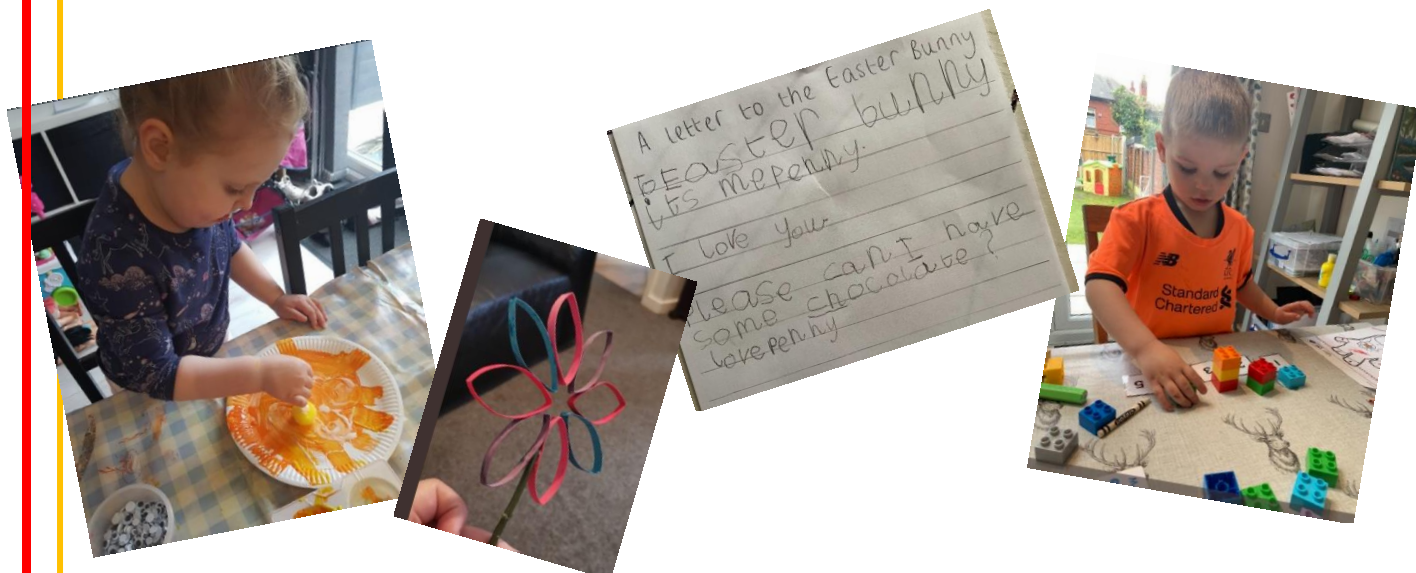 A letter to the Easter Bunny
Easter bunny
its mepenny.
I love you
please can I have
some chocolate?
lovepenny
Standard
Chartered
5
3